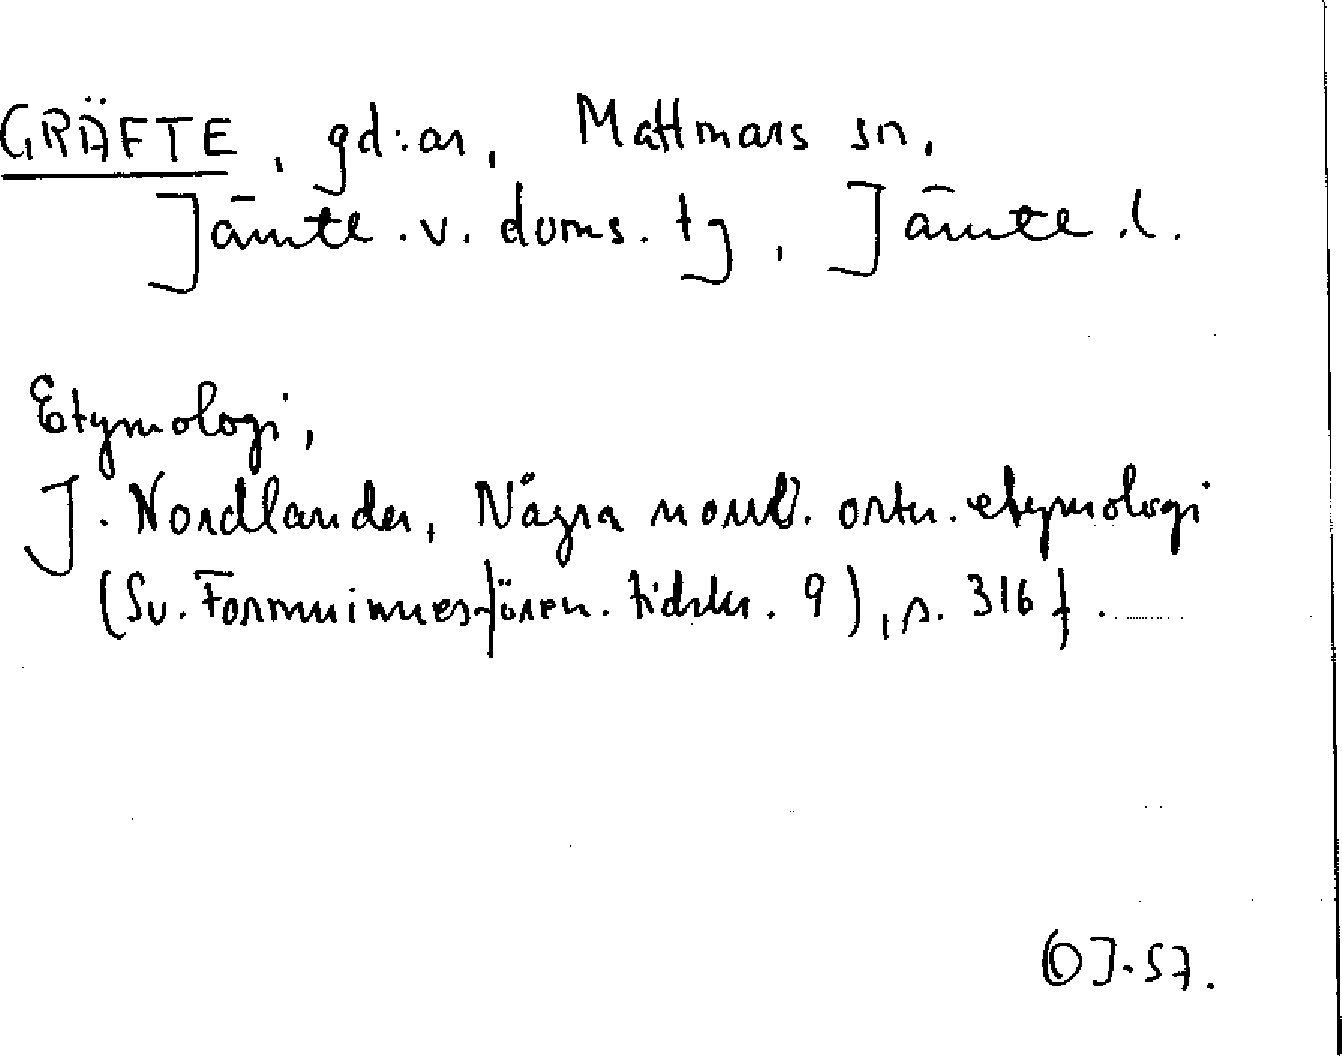 GRÄFTE, gd:ar, Mattmars sn,
Jämtl. v. doms. tg, Jämtl. l.
Etymologi,
J. Nordlander, Några norrl. ortn. etymologi
(Sv. Fornminnesfören. tidskr. 9), s. 316 f.
OJ. 57.